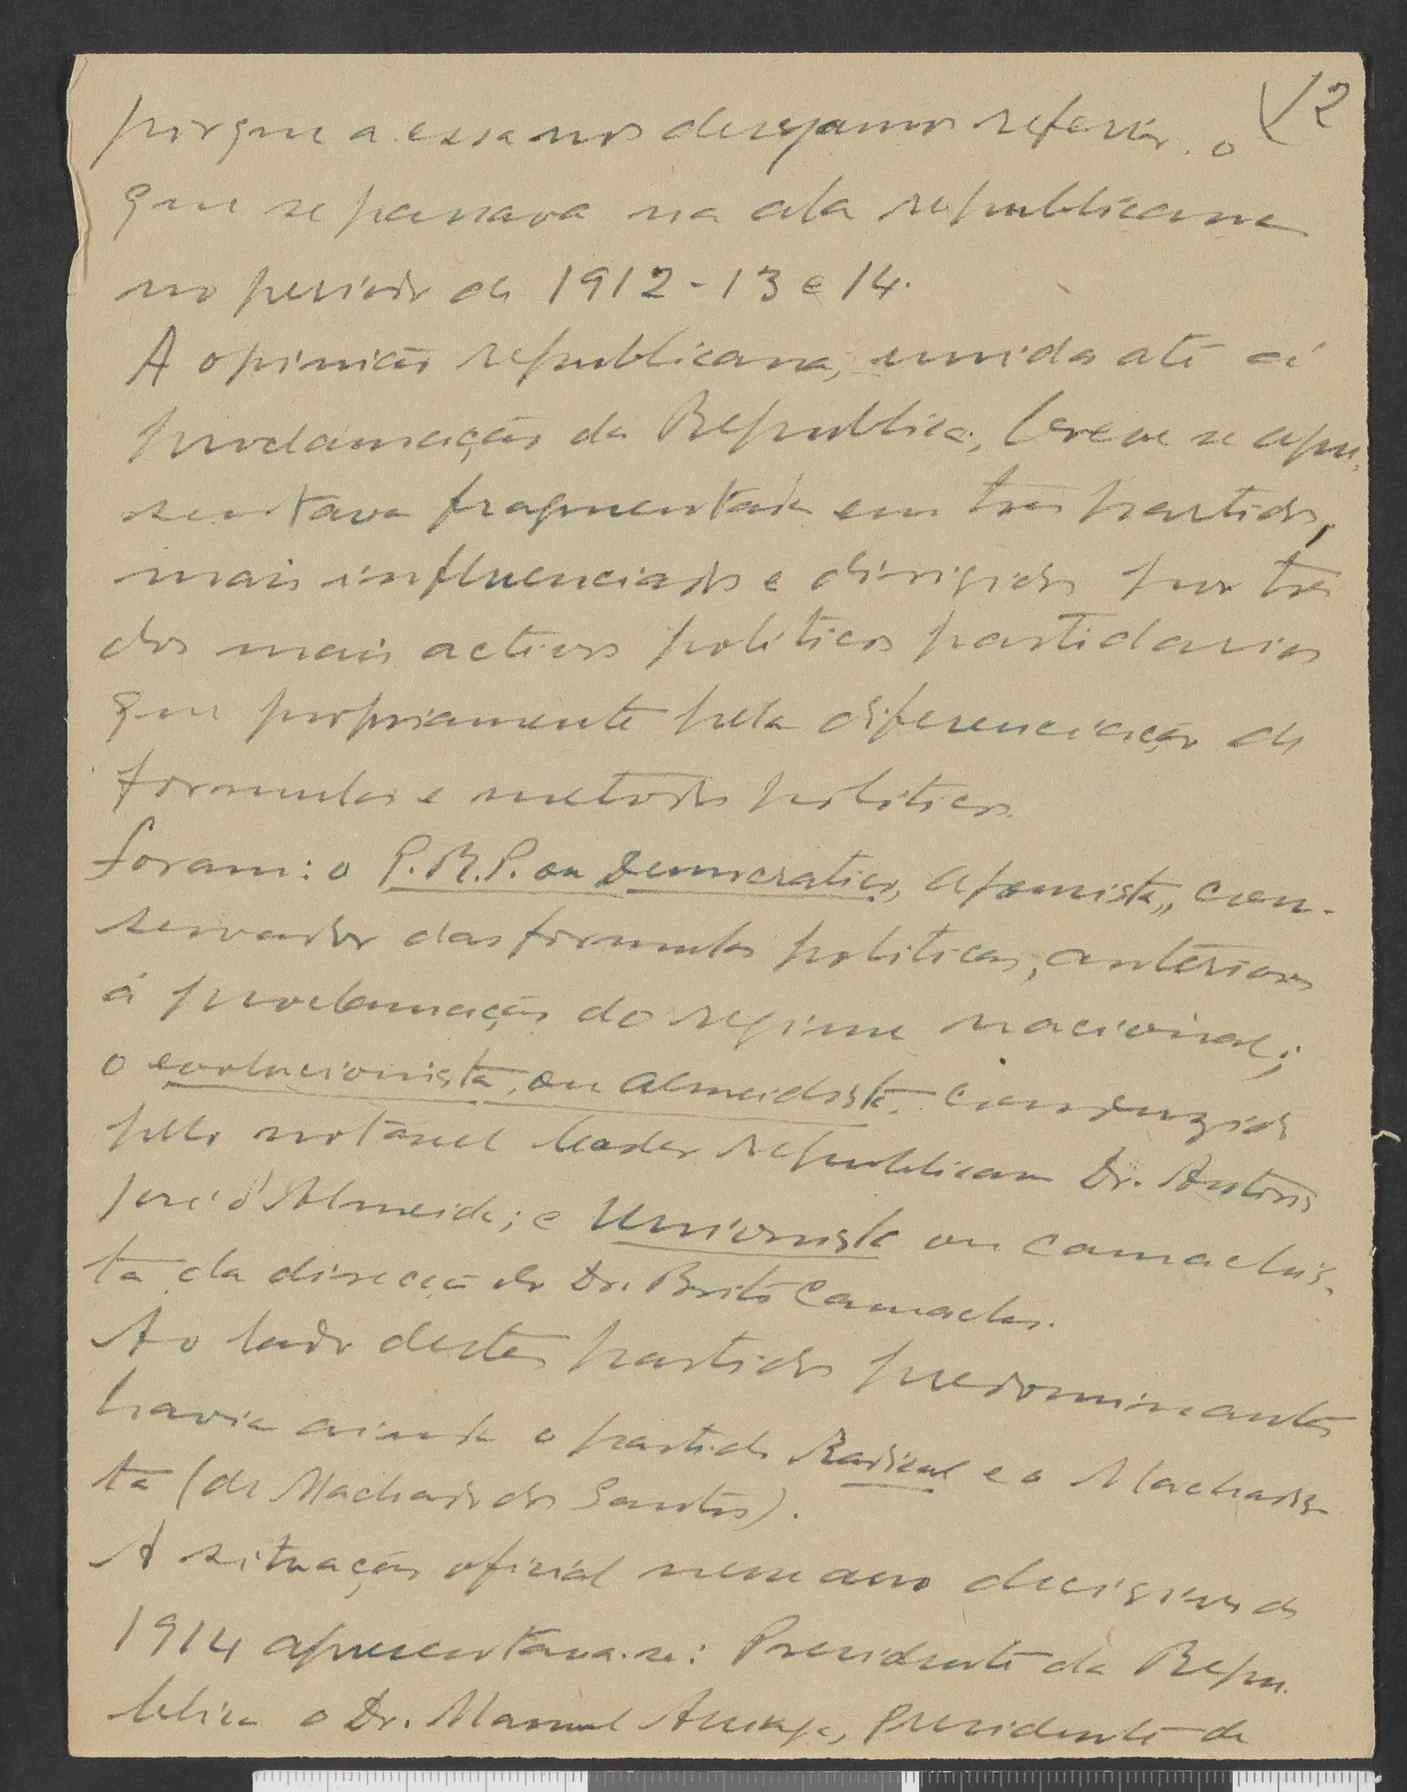 12
porque a essa nos desejamos referir. o
que se passava na ala republicana
no periodo de 1912-13 e 14.
A opinião republicana, unida até á
proclamação da Republica, breve se apre-
sentava fragmentada em tres partidos,
mais influenciados e dirigidos por tres
dos mais activos politicos partidarios
que propriamente pela diferenciação de
formulas e metodos politicos.
foram: o P.R.P. ou Democratico, afonsista, con-
servador das formulas politicas, anteriores
á proclamação do regime nacional;
o evolucionista, ou almeidista, conduzido
pelo notavel leader republicano Dr. Antonio
José d'Almeida; e Unionista ou camachis-
ta da direcção do Dr. Brito Camacho.
Ao lado destes partidos predominantes
havia ainda o partido Radical e o Machadis-
ta (de Machado dos Santos).
A situação oficial nesse ano decisivo de
1914 apresentava-se: Presidente da Repu-
blica o Dr. Manuel Arriaga, Presidente de